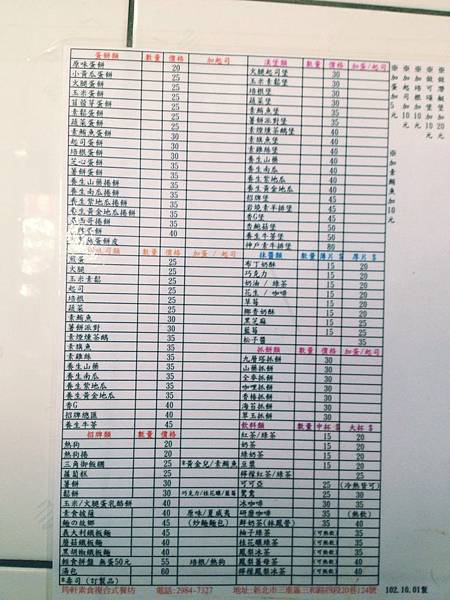 蛋餅類 數量 價格 加起司
原味蛋餅 20
小黃瓜蛋餅 25
火腿蛋餅 25
玉米蛋餅 25
苜蓿芽蛋餅 25
素鬆蛋餅 25
蔬菜蛋餅 25
素鮪魚蛋餅 30
起司蛋餅 30
培根蛋餅 30
芝心蛋餅 30
薯餅蛋餅 30
養生山藥捲餅 40
養生南瓜捲餅 40
養生紫地瓜捲餅 40
養生黃金地瓜捲餅 40
墨西哥捲餅 40
數量 價格 加蛋 / 起司
煎蛋 25
火腿 25
玉米素鬆 25
起司 25
培根 25
蔬菜 25
素鮪魚 30
薯餅派對 30
素煙燻茶鵝 35
素旗魚 35
素雞絲 35
養生山藥 35
養生南瓜 35
養生紫地瓜 35
養生黃金地瓜 35
香G 40
招牌總匯 40
養生牛蒡 45
招牌類 數量 價格
熱狗 20
熱狗捲 20
三角御飯糰 25 *黃金兒/素鮪魚
蘿蔔糕 25
薯餅 30
鬆餅 30 巧克力/桂花釀/藍莓
玉米/火腿蛋乳酪餅 40
素食披薩 40 原味/夏威夷
麵の故鄉 45 (炒麵麵包)
義大利鐵板麵 45
蘑菇鐵板麵 45
黑胡椒鐵板麵 45
輕食拼盤 無蛋50元 55 培根/熱狗
湯包 60
*壽司 (訂製品)
漢堡類 數量 價格 加蛋/起司
火腿起司堡 30
玉米素鬆堡 30
培根堡 30
蔬菜堡 30
素鮪魚堡 35
薯餅派對堡 35
素煙燻茶鵝堡 40
素旗魚堡 40
素雞絲堡 40
養生山藥堡 40
養生南瓜堡 40
養生紫地瓜堡 40
養生黃金地瓜堡 40
招牌堡 45
岩燒素羊排堡 45
香G堡 45
香鮑菇堡 50
養生牛蒡堡 50
神戶素牛排堡 80
抹醬類 數量 薄片 厚片
布丁奶酥 15 20
巧克力 15 20
奶油 / 綠茶 15 20
花生 / 咖啡 15 20
草莓 15 20
椰香奶酥 15 20
黑芝麻 15 25
藍莓 15 25
松子醬 35
抓餅類 數量 價格 加蛋/起司
九層塔抓餅 30
山藥抓餅 30
全麥抓餅 30
咖哩抓餅 30
香椿抓餅 30
海苔抓餅 30
草玉抓餅 30
飲料類 數量 中杯 大杯
紅茶/綠茶 15 20
奶茶 15 20
綠奶茶 15 20
豆漿 15 20
檸檬紅茶/綠茶 25
可可亞 25 (冷熱皆可)
鴛鴦 25 30
冰咖啡 30
研磨咖啡 35 (熱飲)
鮮奶茶(林鳳營) 35 40
柚子綠茶 (可熱飲) 35
桂花釀綠茶 (可熱飲) 35
鳳梨冰茶 (可熱飲) 35
鳳梨薑母茶 (可熱飲) 35
檸檬鳳梨冰茶 (可熱飲) 35
※加蛋5元
※加起司10元
※加培根10元
※加素鮪魚加10元
筠軒素食複合式餐坊 電話:2984-7327 地址:新北市三重區三和路四段20巷124號 102.10.01製